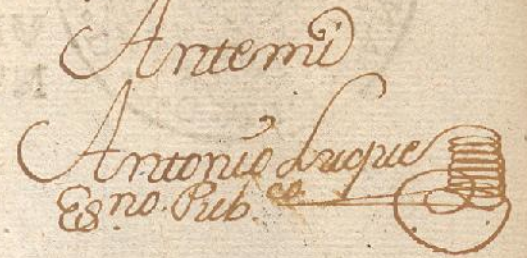 Antemi
Antonio Luque
Esno. Pubco.